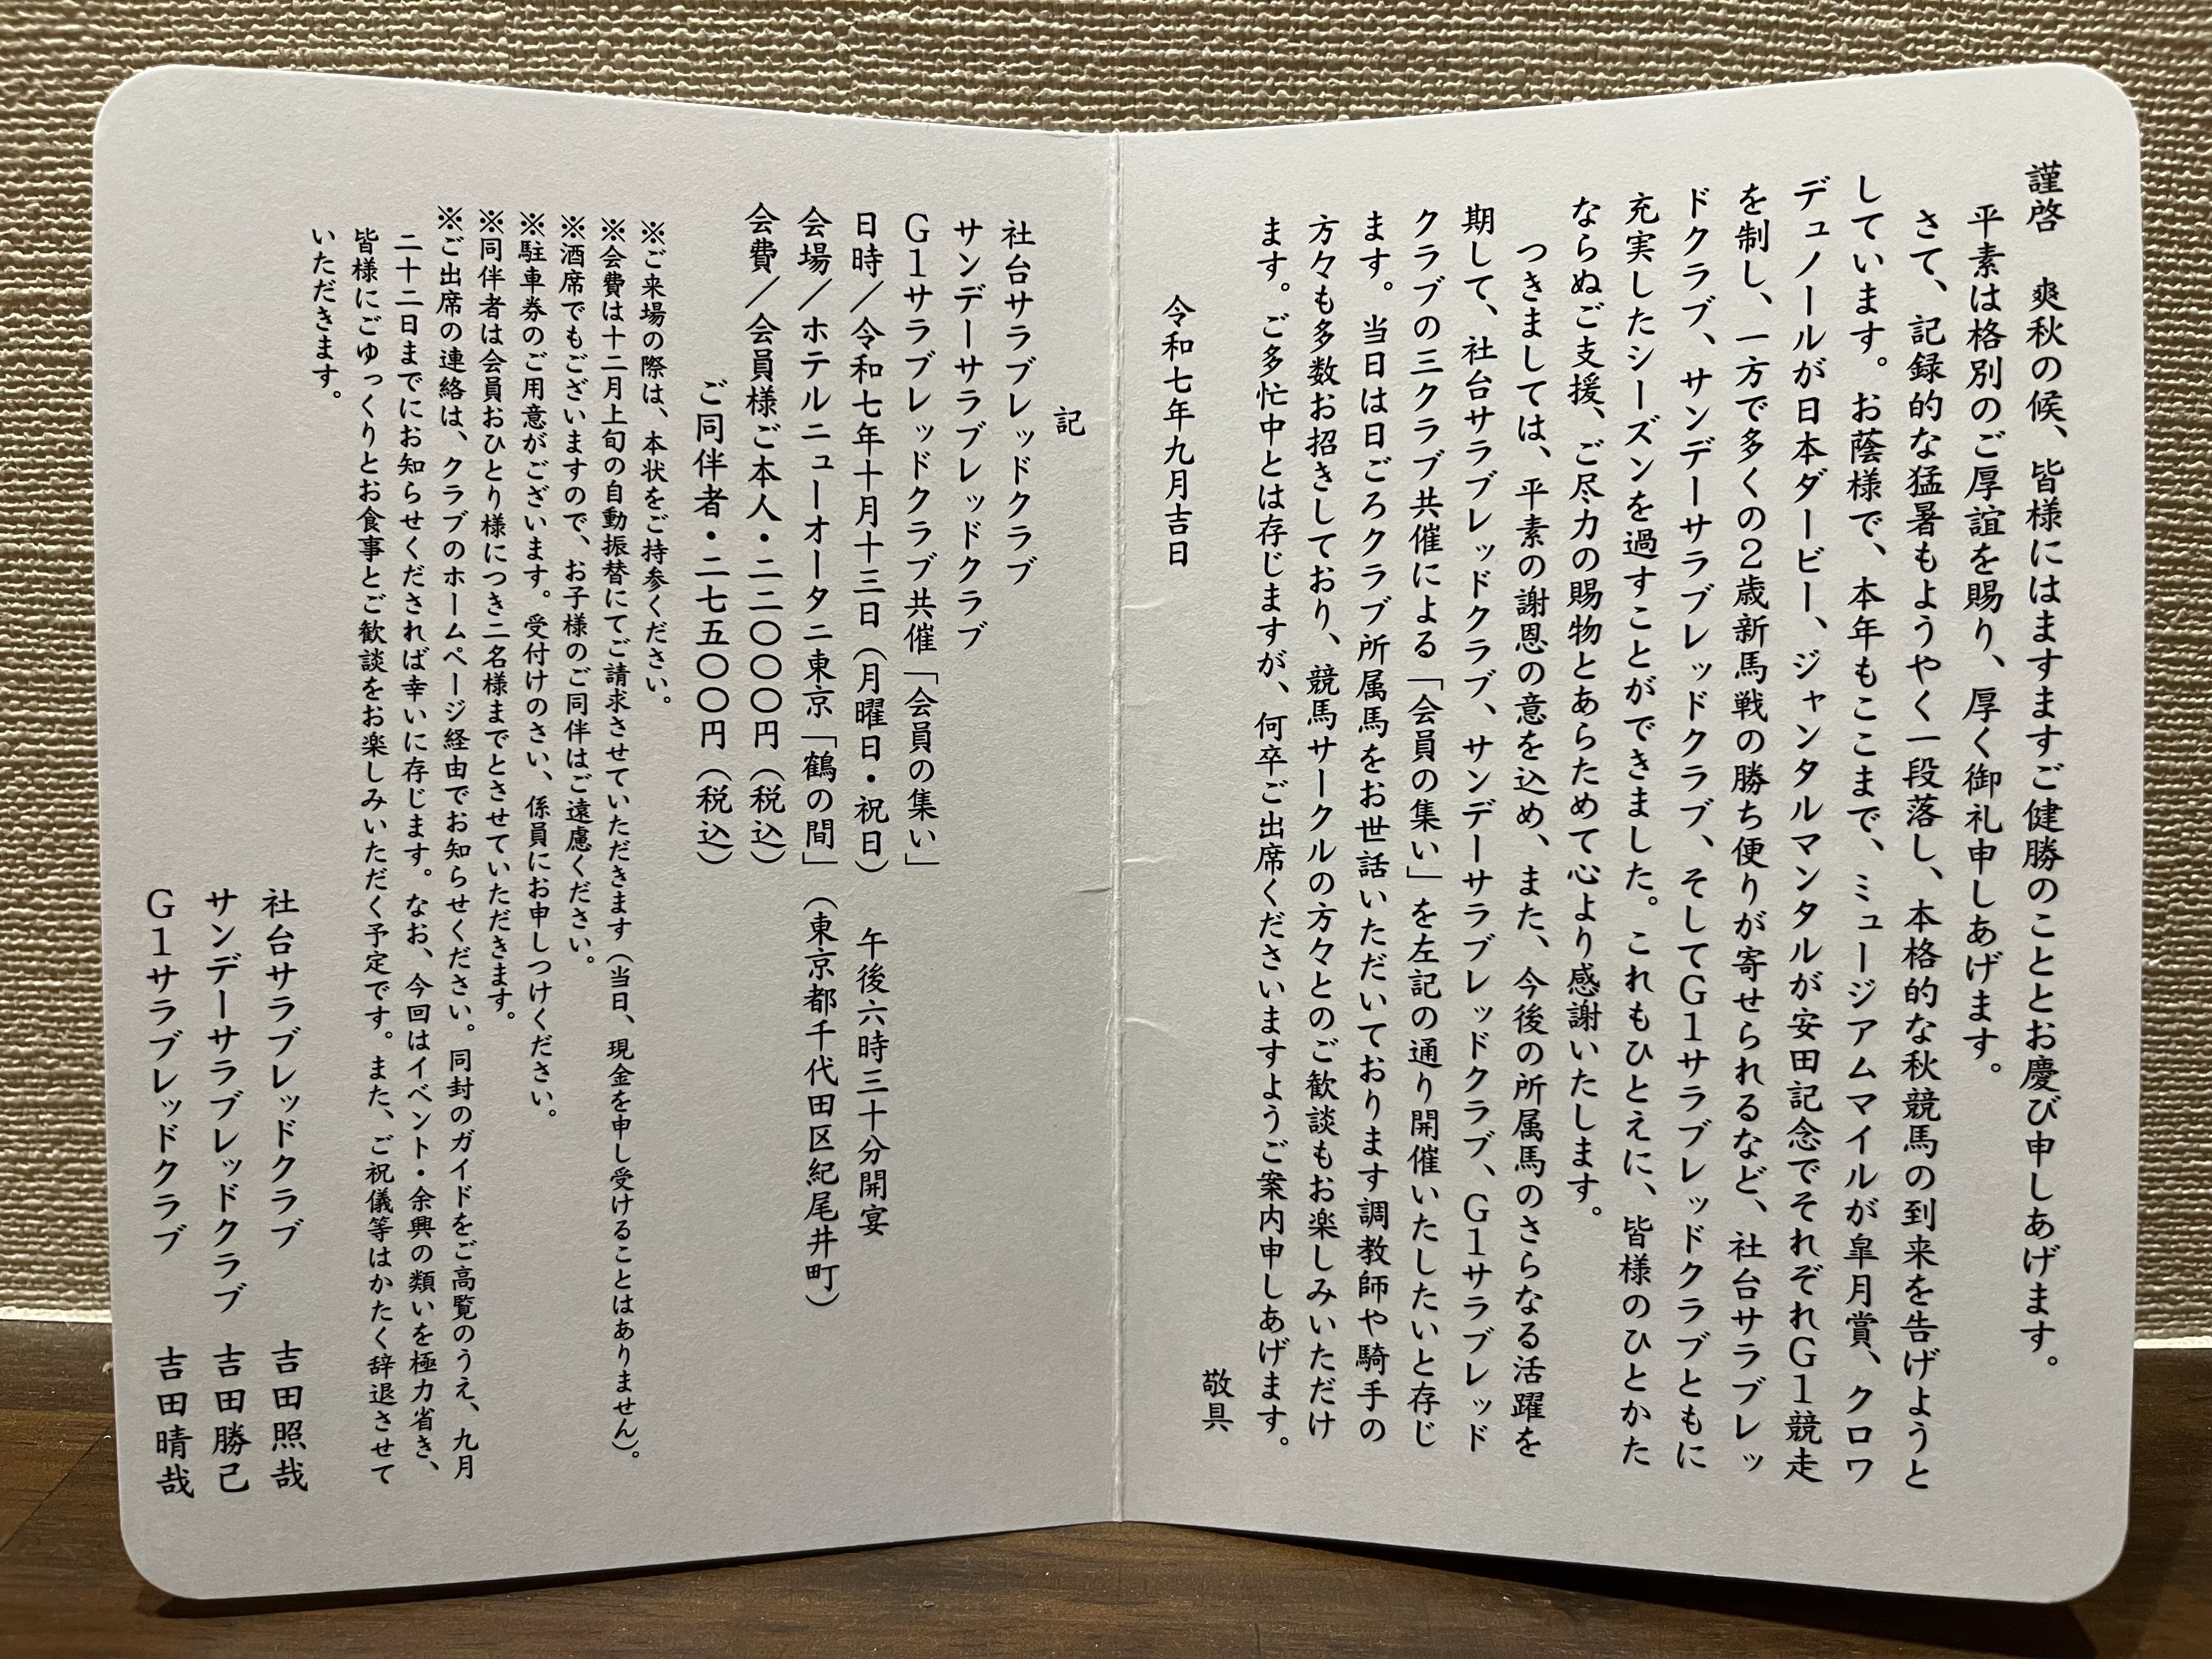 謹啓　爽秋の候、皆様にはますますご健勝のこととお慶び申しあげます。
平素は格別のご厚誼を賜り、厚く御礼申しあげます。
さて、記録的な猛暑もようやく一段落し、本格的な秋競馬の到来を告げようと
しています。お蔭様で、本年もここまで、ミュージアムマイルが皐月賞、クロワ
デュノールが日本ダービー、ジャンタルマンタルが安田記念でそれぞれG1競走
を制し、一方で多くの2歳新馬戦の勝ち便りが寄せられるなど、社台サラブレッ
ドクラブ、サンデーサラブレッドクラブ、そしてG1サラブレッドクラブともに
充実したシーズンを過すことができました。これもひとえに、皆様のひとかた
ならぬご支援、ご尽力の賜物とあらためて心より感謝いたします。
つきましては、平素の謝恩の意を込め、また、今後の所属馬のさらなる活躍を
期して、社台サラブレッドクラブ、サンデーサラブレッドクラブ、G1サラブレッド
クラブの三クラブ共催による「会員の集い」を左記の通り開催いたしたいと存じ
ます。当日は日ごろクラブ所属馬をお世話いただいております調教師や騎手の
方々も多数お招きしており、競馬サークルの方々とのご歓談もお楽しみいただけ
ます。ご多忙中とは存じますが、何卒ご出席くださいますようご案内申しあげます。
敬具
令和七年九月吉日
記
社台サラブレッドクラブ
サンデーサラブレッドクラブ
G1サラブレッドクラブ共催「会員の集い」
日時／令和七年十月十三日（月曜日・祝日）　午後六時三十分開宴
会場／ホテルニューオータニ東京「鶴の間」（東京都千代田区紀尾井町）
会費／会員様ご本人・二二〇〇〇円（税込）
ご同伴者・二七五〇〇円（税込）
※ご来場の際は、本状をご持参ください。
※会費は十二月上旬の自動振替にてご請求させていただきます（当日、現金を申し受けることはありません）。
※酒席でもございますので、お子様のご同伴はご遠慮ください。
※駐車券のご用意がございます。受付けのさい、係員にお申しつけください。
※同伴者は会員おひとり様につき二名様までとさせていただきます。
※ご出席の連絡は、クラブのホームページ経由でお知らせください。同封のガイドをご高覧のうえ、九月
二十二日までにお知らせくだされば幸いに存じます。なお、今回はイベント・余興の類いを極力省き、
皆様にごゆっくりとお食事とご歓談をお楽しみいただく予定です。また、ご祝儀等はかたく辞退させて
いただきます。
社台サラブレッドクラブ　吉田照哉
サンデーサラブレッドクラブ　吉田勝己
G1サラブレッドクラブ　吉田晴哉